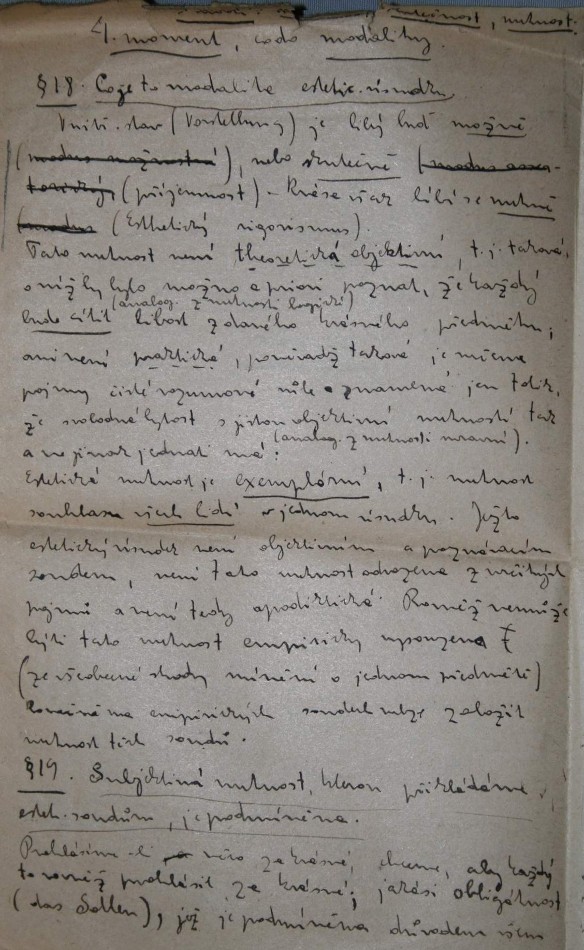 skutečnost, nutnost.
4. moment, co do modality.
§18. Co je to modalita esthetic. úsudku
Vnitř. stav (Vorstellung) je libý buď možně
(modus možnosti), nebo skutečně (modus asser-
torický) (příjemnost) – Krása však líbí se nutně
(modus (Esthetický rigorismus).
Tato nutnost není theoretická objektivní, t. j. taková,
o níž by bylo možno a priori poznat, že každý
(analog. z nutnosti logické)
bude cítit libost z daného krásného předmětu;
ani není praktická, poněvadž taková je
pojmy čisté rozumové vůle a znamená jen tolik,
že svobodná bytost s jistou objektivní nutností tak
(analog. z nutnosti mravní).
a ne jinak jednati má.
Estetická nutnost je exemplární, t. j. nutnost
souhlasu všech lidí v jednom úsudku. Ježto
estetický úsudek není objektivním a poznávacím
soudem, není tato nutnost odvozena z určitých
pojmů a není tedy apodiktická. Rovněž nemůže
býti tato nutnost empiricky
(ze všeobecné shody mínění o jednom předmětě)
na empirických soudech nelze založit
nutnost těch soudů.
§19. Subjektivná nutnost, kterou přikládáme
esteh. soudům, je podmíněna.
Prohlásíme-li něco za krásné, chceme, aby každý
to rovněž prohlásil za krásné; jakási obligátnost
(das Sollen), jež je podmíněna důvodem všem